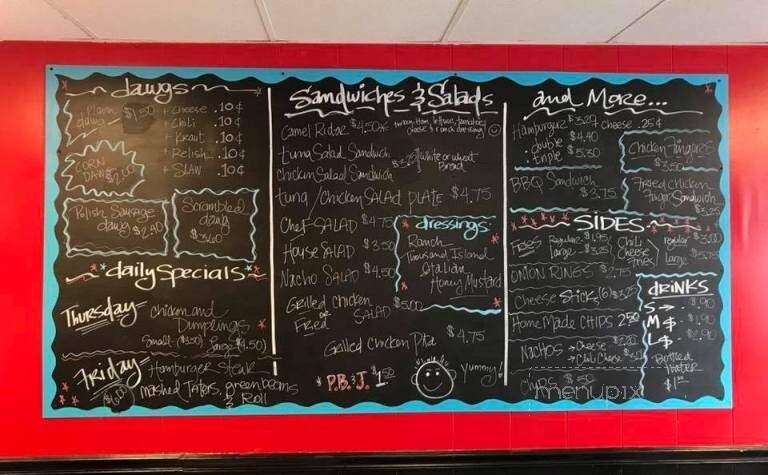 dawgs
Plain dawg $1.50
+ cheese .10¢
+ Chili .10¢
+ Kraut .10¢
+ Relish .10¢
+ SLAW .10¢
CORN DAWG $2.00
Polish Sausage
dawg $2.90
Scrambled
dawg
daily Specials
Thursday Chicken and
Dumplings
Small ($3.50) Large ($4.50)
Friday Hamburger Steak
Mashed Taters, green beans
& Roll
Sandwiches & Salads
Camel Ridge $4.50
turkey, ham, lettuce, tomatoes,
cheese & ranch dressing!
tuna Salad Sandwich
Chicken Salad Sandwich
white or wheat
Bread
tuna / Chicken SALAD PLATE $4.75
Chef SALAD $4.75
House SALAD $3.50
Nacho SALAD $4.50
Grilled Chicken
or
Fried
SALAD $5.00
Grilled Chicken Pita $4.75
P.B. & J. $1.50
yummy!
dressings
Ranch
Thousand Island
Italian
Honey Mustard
and More...
Hamburger cheese .25¢
• double $4.40
• triple $5.30
BBQ Sandwich $3.75
Chicken fingers
$3.50
Fried Chicken
finger Sandwich
SIDES
Fries Regular $1.95
Large
Chili
Cheese
Fries
regular
Large
ONION RINGS $2.75
Cheese Sticks (6)
Home Made CHIPS 2.50
NACHOS → Cheese
→ Chili Cheese
Chips .50
DRINKS
S → .90
M
L
Bottled
Water
menupix